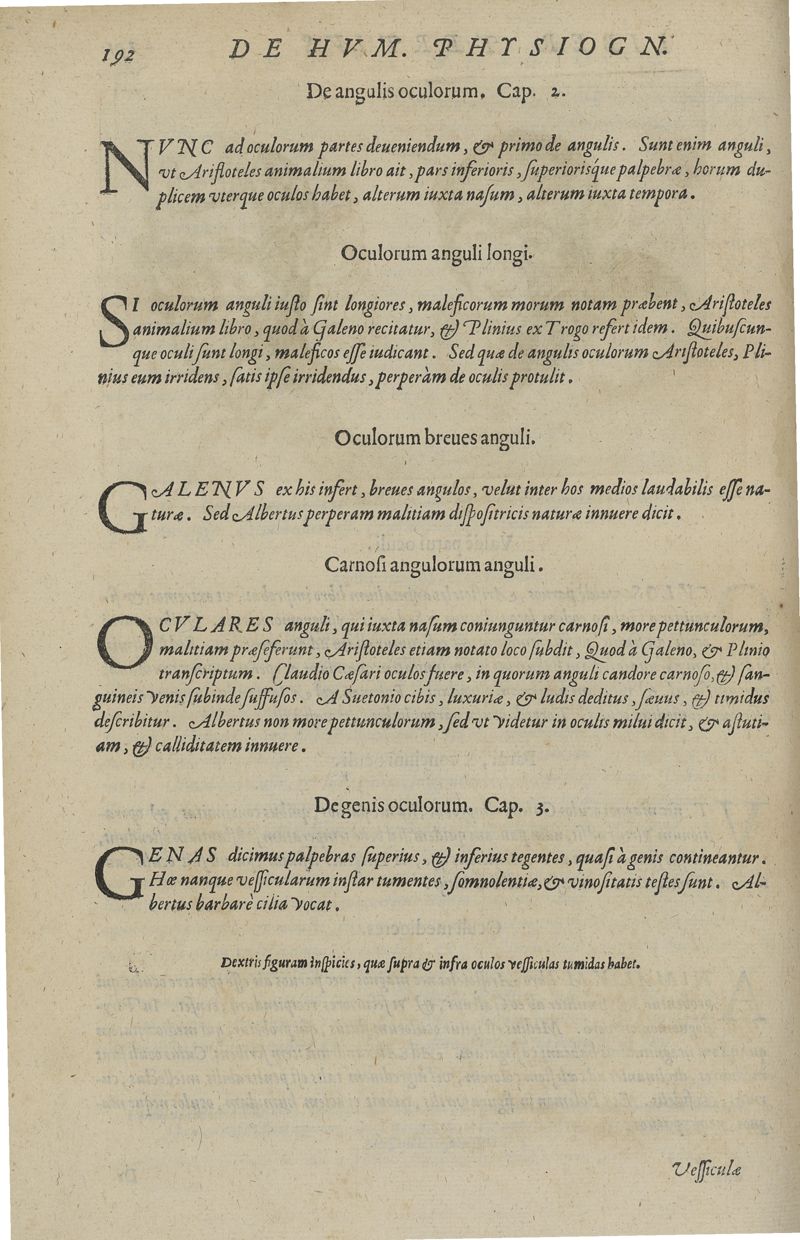 192 DE HVM. PHYSIOGN.
De angulis oculorum. Cap. 2.
NVNC ad oculorum partes deueniendum, & primo de angulis. Sunt enim anguli,
vt Ariſtoteles animalium libro ait, pars inferioris, ſuperiorisq́ue palpebræ, horum du-
plicem vterque oculos habet, alterum iuxta naſum, alterum iuxta tempora.
Oculorum anguli longi.
SI oculorum anguli iuſto ſint longiores, maleficorum morum notam præbent, Ariſtoteles
animalium libro, quod à Galeno recitatur, & Plinius ex Trogo refert idem. Quibuſcun-
que oculi ſunt longi, maleficos eſſe iudicant. Sed quæ de angulis oculorum Ariſtoteles, Pli-
nius eum irridens, ſatis ipſe irridendus, perperàm de oculis protulit.
Oculorum breues anguli.
GALENVS ex his infert, breues angulos, velut inter hos medios laudabilis eſſe na-
turæ. Sed Albertus perperam malitiam diſpoſitricis naturæ innuere dicit.
Carnoſi angulorum anguli.
OCVLARES anguli, qui iuxta naſum coniunguntur carnoſi, more pettunculorum,
malitiam præſeferunt, Ariſtoteles etiam notato loco ſubdit, Quod à Galeno, & Plinio
tranſcriptum. Claudio Cæſari oculos fuere, in quorum anguli candore carnoſo, & ſan-
guineis venis ſubinde ſuffuſos. A Suetonio cibis, luxuriæ, & ludis deditus, ſæuus, & timidus
deſcribitur. Albertus non more pettunculorum, ſed vt videtur in oculis milui dicit, & aſtuti-
am, & calliditatem innuere.
De genis oculorum. Cap. 3.
GENAS dicimus palpebras ſuperius, & inferius tegentes, quaſi à genis contineantur.
Hæ nanque veſſicularum inſtar tumentes, ſomnolentiæ, & vinoſitatis teſtes ſunt. Al-
bertus barbarè cilia vocat.
Dextris figuram inſpicies, quæ ſupra & infra oculos veſſiculas tumidas habet.
Veſſiculæ